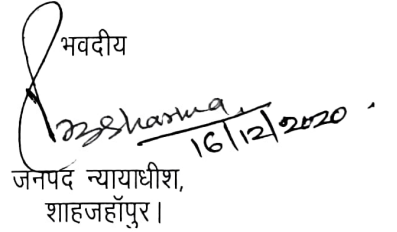 भवदीय
Sharma
16/12/2020
जनपद न्यायाधीश,
शाहजहॉपुर।